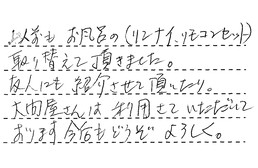 以前も お風呂の(リンナイ、リモコンセット)
取り替えて頂きました。
友人にも 紹介させて頂いたり。
大内屋さんは 利用させていただいて
おります 今后もどうぞ よろしく。